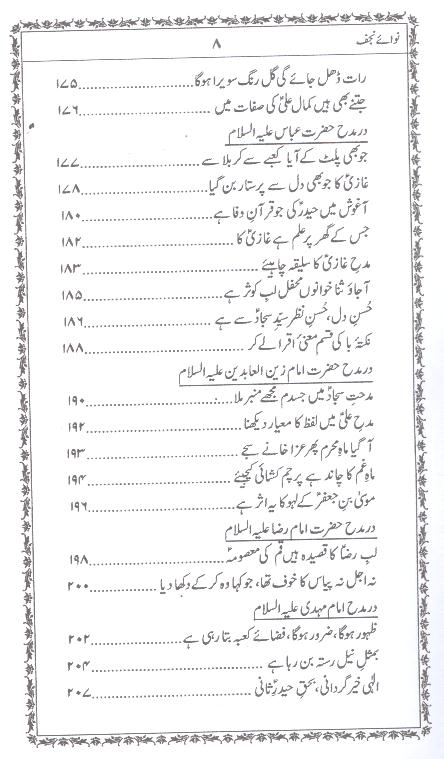 نوائے نجف ۸
رات ڈھل جائے گی گل رنگ سویرا ہوگا ۱۷۵
جتنے بھی ہیں کمال علیؑ کی صفات میں ۱۷۶
در مدح حضرت عباس علیہ السلام
جو بھی پلٹ کے آیا کعبے سے کربلا سے ۱۷۷
غازیؑ کا جو بھی دل سے پرستار بن گیا ۱۷۸
آغوش میں حیدرؑ کی جو قرآنِ وفا ہے ۱۸۰
جس کے گھر پر علم ہے غازیؑ کا ۱۸۲
مدحِ غازیؑ کا سلیقہ چاہیئے ۱۸۳
آ جاؤ ثنا خوانوں محفل لبِ کوثر ہے ۱۸۵
حُسنِ دل، حُسنِ نظر سیّدِ سجادؑ سے ہے ۱۸۶
نکتۂ با کی قسم معنیٔ اقرا لے کر ۱۸۸
در مدح حضرت امام زین العابدین علیہ السلام
مدحتِ سجادؑ میں جس دم مجھے منبر ملا ۱۹۰
مدحِ علیؑ میں لفظ کا معیار دیکھنا ۱۹۲
آ گیا ماہِ محرم پھر عزا خانے سجے ۱۹۳
ماہِ غم کا چاند ہے پرچم کشائی کیجیئے ۱۹۴
موسیٰ بنِ جعفرؑ کے لہو کا یہ اثر ہے ۱۹۶
در مدح حضرت امام رضا علیہ السلام
لبِ رضاؑ کا قصیدہ ہیں قم کی معصومہؑ ۱۹۸
نہ اجل نہ پیاس کا خوف تھا، جو کہا وہ کر کے دکھا دیا ۲۰۰
در مدح امام مہدی علیہ السلام
ظہور ہوگا، ضرور ہوگا، فضائے کعبہ بتا رہی ہے ۲۰۲
بمثلِ نیل رستہ بن رہا ہے ۲۰۴
الٰہی خیر گردانی، بحقِ حیدرِؑ ثانی ۲۰۷